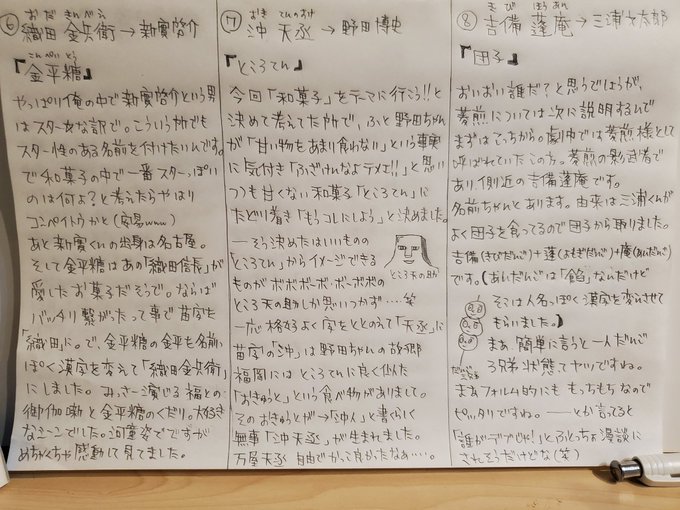 ⑥ 織田 金兵衛 → 新實啓介
おだ きんべえ
こんぺいとう
『金平糖』
やっぱり俺の中で新實啓介という男
はスターな訳で。こういう所でも
スター性のある名前を付けたいんです。
で和菓子の中で一番スターっぽい
のは何よ？と考えたらやはり
コンペイトウかと(安易www)
あと新實くんの出身は名古屋。
そして金平糖はあの「織田信長」が
愛したお菓子だそうで。ならば
バッチリ繋がったって事で苗字を
「織田」に。で、金平糖の金平も名前
ぽく漢字を変えて「織田金兵衛」
にしました。みっさー演じる福との
御伽噺と金平糖のくだり。大好き
なシーンでした。河童姿でですが
めちゃくちゃ感動して見てました。
⑦ 沖 天丞 → 野田博史
おき てんのすけ
『ところてん』
今回「和菓子」をテーマに行こう!!と
決めて考えてた所で、ふと野田ちゃん
が「甘い物をあまり食わない」という事実
に気付き「ふざけんなよテメェ!!」と思い
つつも甘くない和菓子「ところてん」に
たどり着き「もうコレにしよう」と決めました。
―そう決めたはいいものの
「ところてん」からイメージできる
ものがボボボーボ・ボーボボの
ところ天の助しか思いつかず…笑
ところ天の助
一応格好よく字をととのえて「天丞」に
苗字の「沖」は野田ちゃんの故郷
福岡にはところてんに良く似た
「おきゅうと」という食べ物がありまして。
そのおきゅうとが→「沖人」と書くらしく
無事「沖天丞」が生まれました。
万屋天丞 自由でかって良かったなぁ…。
⑧ 吉備 蓬庵 → 三浦 太郎
きび ほうあん
『団子』
おいおい誰だ？と思うでしょうが、
菱煎については次に説明するんで
まずはこっちから。劇中では菱煎様として
呼ばれていたこの方。菱煎の影武者で
あり、側近の吉備蓬庵です。
名前ちゃんとあります。由来は三浦くんが
よく団子を食ってるので団子から取りました。
吉備(きびだんご)+蓬(よもぎだんご)+庵(あんだんご)
です。(あんだんごは「餡」なんだけど
そこは人名っぽく漢字を変えさせて
もらいました。)
まぁ簡単に言うと一人だんご
3兄弟状態でヤツですね。
だんご3兄弟
まぁフォルム的にももっちもちなので
ピッタリですね。――とか言ってると
「誰がデブじゃ!」とふとっちょ漫談に
されそうだけどな(笑)